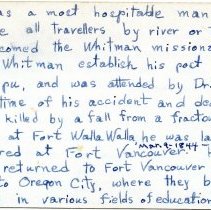 as a most hospitable man
e all travellers by river or
comed the Whitman missiona
Whitman establish his post
pu, and was attended by Dr.
time of his accident and dea
killed by a fall from a fracto
at Fort Walla Walla he was la
red at Fort Vancouver. Mar. 9-1844 T
returned to Fort Vancouver
to Oregon City, where they b
in various fields of education